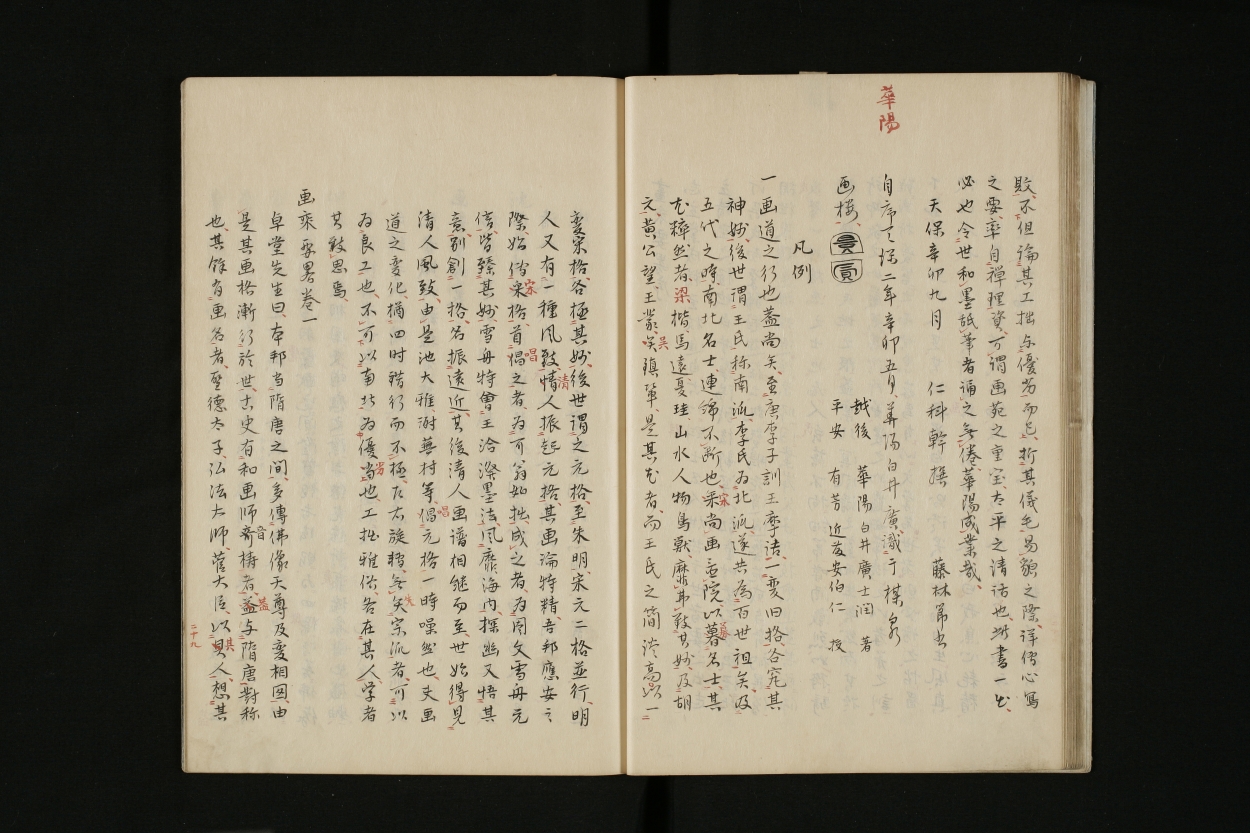 華陽
敗、不但論其工拙与優劣而已、析其儀毛易貌之際、詳悉心写
之要、率自禅理資、可謂画苑之重宝、太平之清話也、此書一出、
必也令世和墨舐筆者誦之無倦、華陽成業哉、
天保辛卯九月 仁科幹撰 藤林 書
自序 天保二年辛卯五月華陽白井廣識于
越後 華陽白井廣士潤 著
画楼
平安 有芳近藤安伯仁 校
凡例
一画道之行也蓋尚矣、至唐李子訓王摩詰、一変旧格、各究其
神妙、後世謂王氏称南派、李氏為北派、遂共為百世祖矣、及
五代之時、南北名士、連綿不断也、宋尚画画院、以募名士、其
尤粋然者、梁楷馬遠夏珪山水人物鳥獣、靡弗致其妙、及胡
元、黄公望王蒙呉鎮輩、是其尤者、而王氏之簡淡高 一
変宋格、各極其妙、後世謂之元格、至朱明、宋元二格並行、明
人又有一種風致、清人振起元格、其画論特精、吾邦応安之
際、始倣宋格、首唱之者、為可翁如拙、成之者、為周文雪舟元
信、皆臻其妙、雪舟特会王洽溌墨法、風靡海内、探幽又悟其
意、別創一格、名振遠近、其後清人画譜相継而至、世始得見
清人風致、由是池大雅謝蕪村等、唱元格、一時噪然也、夫画
道之変化、猶四時錯行而不極、左右旋 無 矣、宗派者、可以
為良工也、不可以南北為優劣也、工拙雅俗、各在其人、学者
其致思焉
画乘要略巻一
卓堂先生曰、本邦当隋唐之間、多伝仏像天尊及変相図、由
是其画格漸行於世、古史有和画師音檮者、蓋与隋唐対称
也、其余有画名者、聖徳太子、弘法大師、菅大臣、以其人想其
二十九